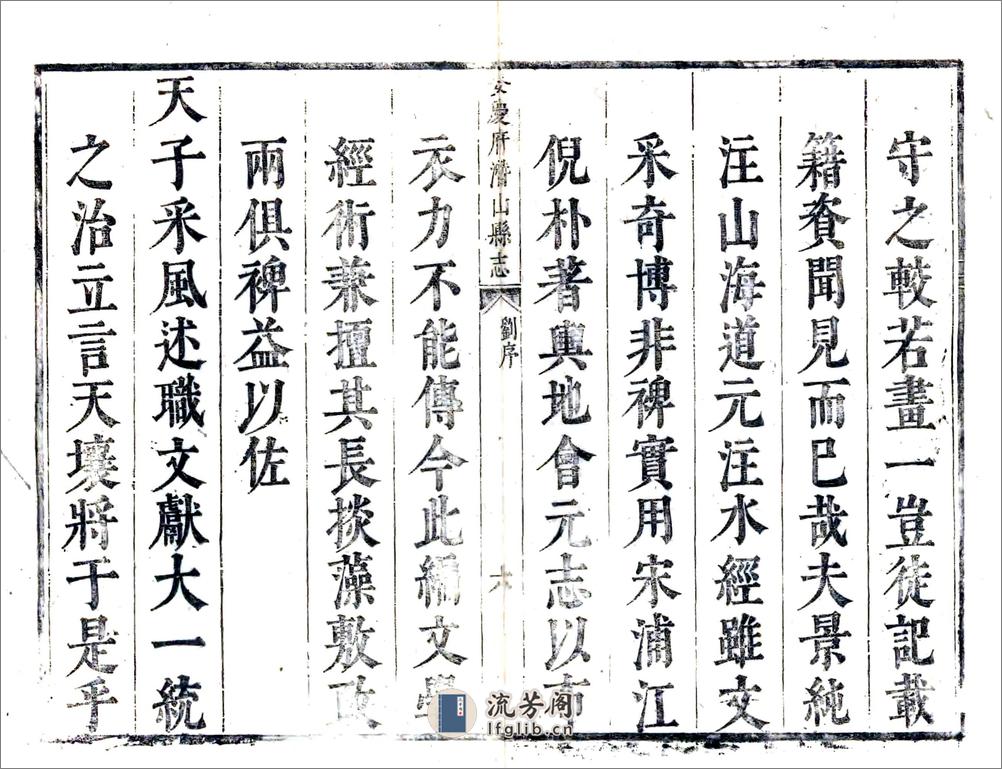 守之較若畫一豈徒記載
籍資聞見而已哉夫景純
注山海道元注水經雖文
采奇博非裨實用宋浦江
倪朴著輿地會元志以布
安慶府潛山縣志
劉序
衣力不能傳今此編文學
經術兼擅其長掞藻敷政
兩俱裨益以佐
天子采風述職文獻大一統
之治立言天壤將于是乎
流芳阁
lfglib.cn